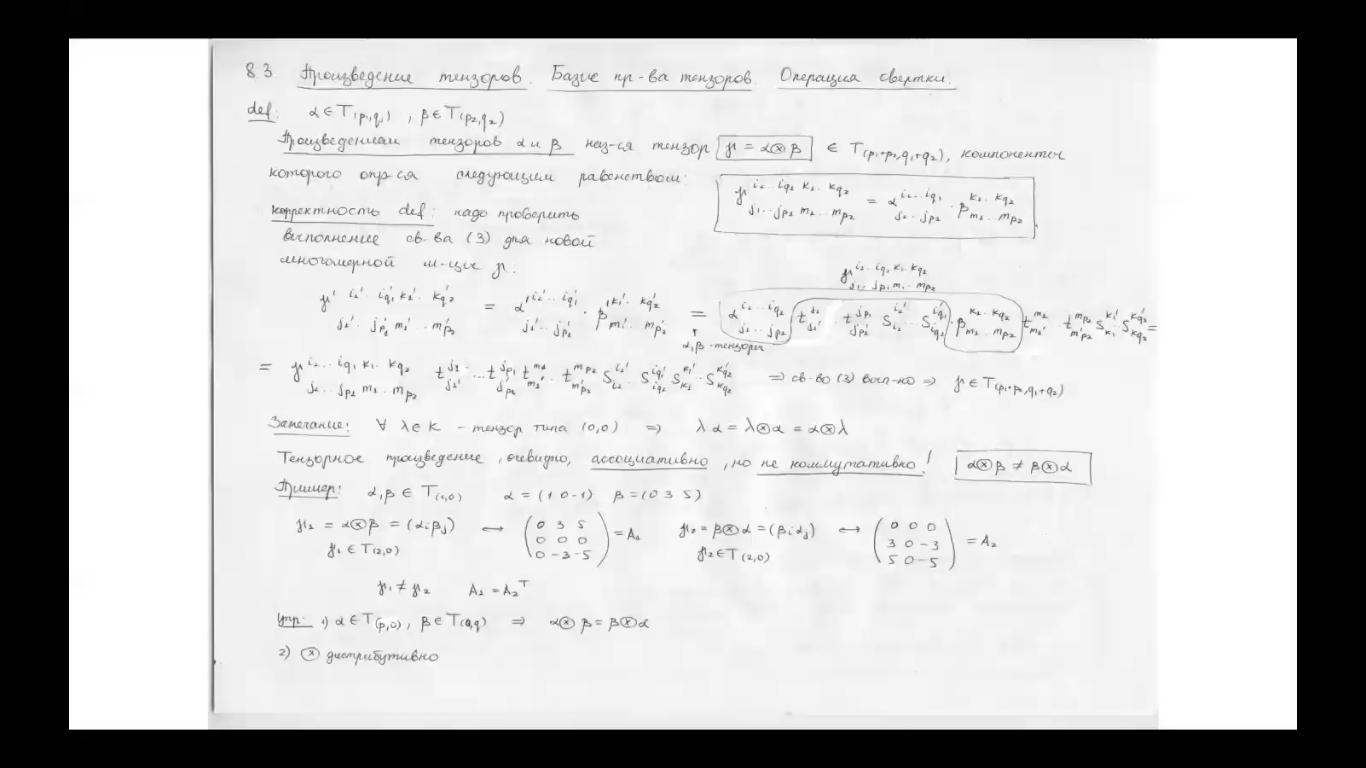 8.3. Произведение тензоров. Базис пр-ва тензоров. Операция свертки.
def: α ∈ T(p₁,q₁), β ∈ T(p₂,q₂)
Произведением тензоров α и β наз-ся тензор γ = α⊗β ∈ T(p₁+p₂,q₁+q₂), компоненты
которого опр-ся следующим равенством: γ^{i₁..iq₁ k₁..kq₂}_{j₁..jp₁ m₁..mp₂} = α^{i₁..iq₁}_{j₁..jp₁} · β^{k₁..kq₂}_{m₁..mp₂}
корректность def: надо проверить
выполнение св-ва (3) для новой
многомерной м-цы γ:
γ^{i₁..iq₁ k₁..kq₂}_{j₁..jp₁ m₁..mp₂}
γ'^{i₁'..iq₁' k₁'..kq₂'}_{j₁'..jp₁' m₁'..mp₂'} = α'^{i₁'..iq₁'}_{j₁'..jp₁'} · β'^{k₁'..kq₂'}_{m₁'..mp₂'} = α^{i₁..iq₁}_{j₁..jp₁} t^{j₁}_{j₁'}..t^{jp₁}_{jp₁'} S^{i₁'}_{i₁}..S^{iq₁'}_{iq₁} · β^{k₁..kq₂}_{m₁..mp₂} t^{m₁}_{m₁'}..t^{mp₂}_{mp₂'} S^{k₁'}_{k₁}..S^{kq₂'}_{kq₂} =
α,β - тензоры
= γ^{i₁..iq₁ k₁..kq₂}_{j₁..jp₁ m₁..mp₂} t^{j₁}_{j₁'}...t^{jp₁}_{jp₁'} t^{m₁}_{m₁'}..t^{mp₂}_{mp₂'} S^{i₁'}_{i₁}..S^{iq₁'}_{iq₁} S^{k₁'}_{k₁}..S^{kq₂'}_{kq₂} ⇒ св-во (3) вып-но ⇒ γ ∈ T(p₁+p₂,q₁+q₂)
Замечание: ∀ λ ∈ K - тензор типа (0,0) ⇒ λα = λ⊗α = α⊗λ
Тензорное произведение, очевидно, ассоциативно, но не коммутативно! α⊗β ≠ β⊗α
Пример: α,β ∈ T(1,0) α = (1 0 -1) β = (0 3 5)
γ₁ = α⊗β = (αᵢβⱼ) ↔ (0 3 5 / 0 0 0 / 0 -3 -5) = A₁ γ₂ = β⊗α = (βᵢαⱼ) ↔ (0 0 0 / 3 0 -3 / 5 0 -5) = A₂
γ₁ ∈ T(2,0) γ₂ ∈ T(2,0)
γ₁ ≠ γ₂ A₁ = A₂ᵀ
Упр: 1) α ∈ T(p,0), β ∈ T(0,q) ⇒ α⊗β = β⊗α
2) ⊗ дистрибутивно